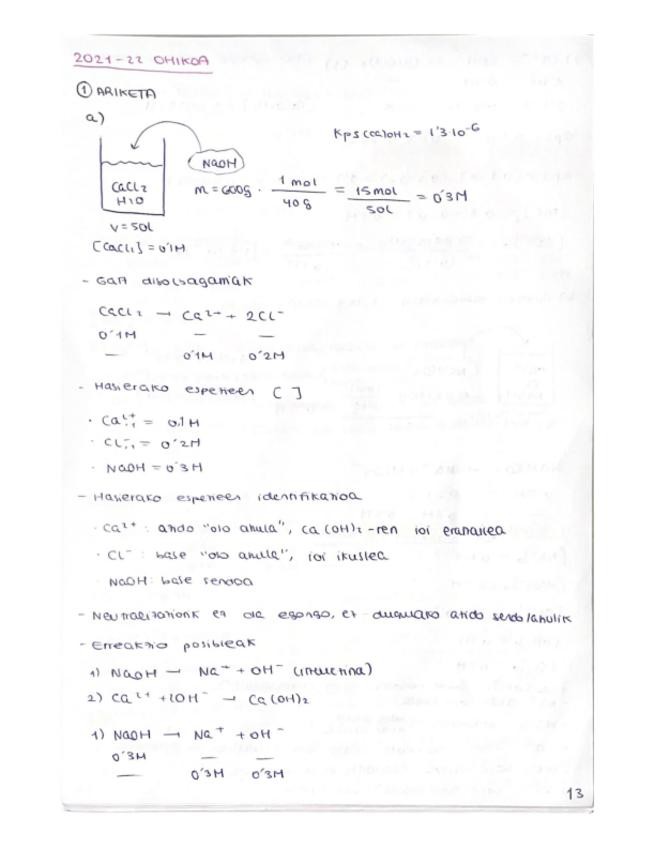 2021-22 OHIKOA
① ARIKETA
a)
Kps Ca(OH)2 = 1'3·10-6
NaOH
CaCl2
H2O
m = 600g · 1 mol / 40 g = 15 mol / 50L = 0'3M
V = 50L
[CaCl2] = 0'1M
- Gatz disolbagarriak
CaCl2 → Ca2+ + 2Cl-
0'1M — —
— 0'1M 0'2M
- Hasierako espezieen [ ]
· Ca2+ = 0.1M
· Cl- = 0'2M
· NaOH = 0'3M
- Hasierako espezieen identifikazioa
· Ca2+ : azido "oso ahula", Ca(OH)2-ren ioi
· Cl- : base "oso ahula", ioi ikuslea
· NaOH: base sendoa
- Neutralizaziorik ez da egongo, ez dugulako azido sendo/ahulik
- Erreakzio posibleak
1) NaOH → Na+ + OH-
2) Ca2+ + 2OH- → Ca(OH)2
1) NaOH → Na+ + OH-
0'3M — —
— 0'3M 0'3M
13